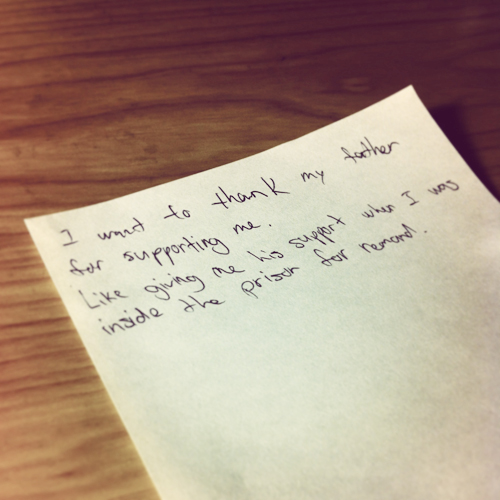 I want to thank my father
for supporting me.
Like giving me his support when I was
inside the prison for remand.